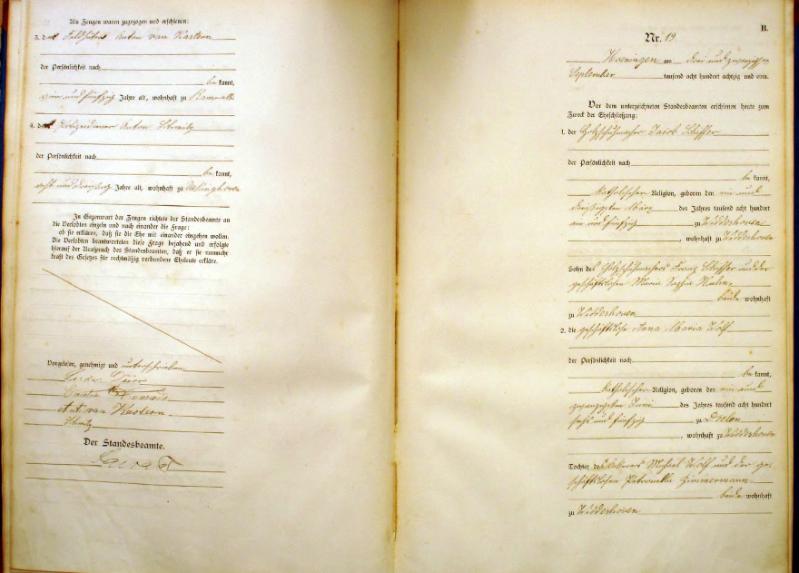 Als Zeugen waren zugezogen und erschienen:
3. der Feldhüter Anton van Kastern
der Persönlichkeit nach
be kannt,
und fünfzig Jahre alt, wohnhaft zu
4. der Polizeidiener Anton
der Persönlichkeit nach
be kannt,
acht und dreißig Jahre alt, wohnhaft zu
In Gegenwart der Zeugen richtete der Standesbeamte an
die Verlobten einzeln und nach einander die Frage:
ob sie erklären, daß sie die Ehe mit einander eingehen wollen.
Die Verlobten beantworteten diese Frage bejahend und erfolgte
hierauf der Ausspruch des Standesbeamten, daß er sie nunmehr
kraft des Gesetzes für rechtmäßig verbundene Eheleute erkläre.
Vorgelesen, genehmigt und unterschrieben
A. van Kastern
Der Standesbeamte.
B.
Nr. 19
Hoeningen am drei und zwanzigsten
September tausend acht hundert achtzig und eins.
Vor dem unterzeichneten Standesbeamten erschienen heute zum
Zweck der Eheschließung:
1. der Holzschuhmacher Jacob
der Persönlichkeit nach
be kannt,
katholischer Religion, geboren den ein und
dreißigsten März des Jahres tausend acht hundert
ein und fünfzig zu Widdeshoven
, wohnhaft zu Widdeshoven
Sohn des Holzschuhmachers Franz und der
geschäftslosen Maria
beide wohnhaft
zu Widdeshoven
2. die geschäftslose Anna Maria Wolf
der Persönlichkeit nach
be kannt,
katholischer Religion, geboren den ein und
zwanzigsten Juni des Jahres tausend acht hundert
sechs und fünfzig zu
, wohnhaft zu Widdeshoven
Tochter des Ackerers Michael Wolf und der ge-
schäftslosen Petronella Zimmermann
beide wohnhaft
zu Widdeshoven